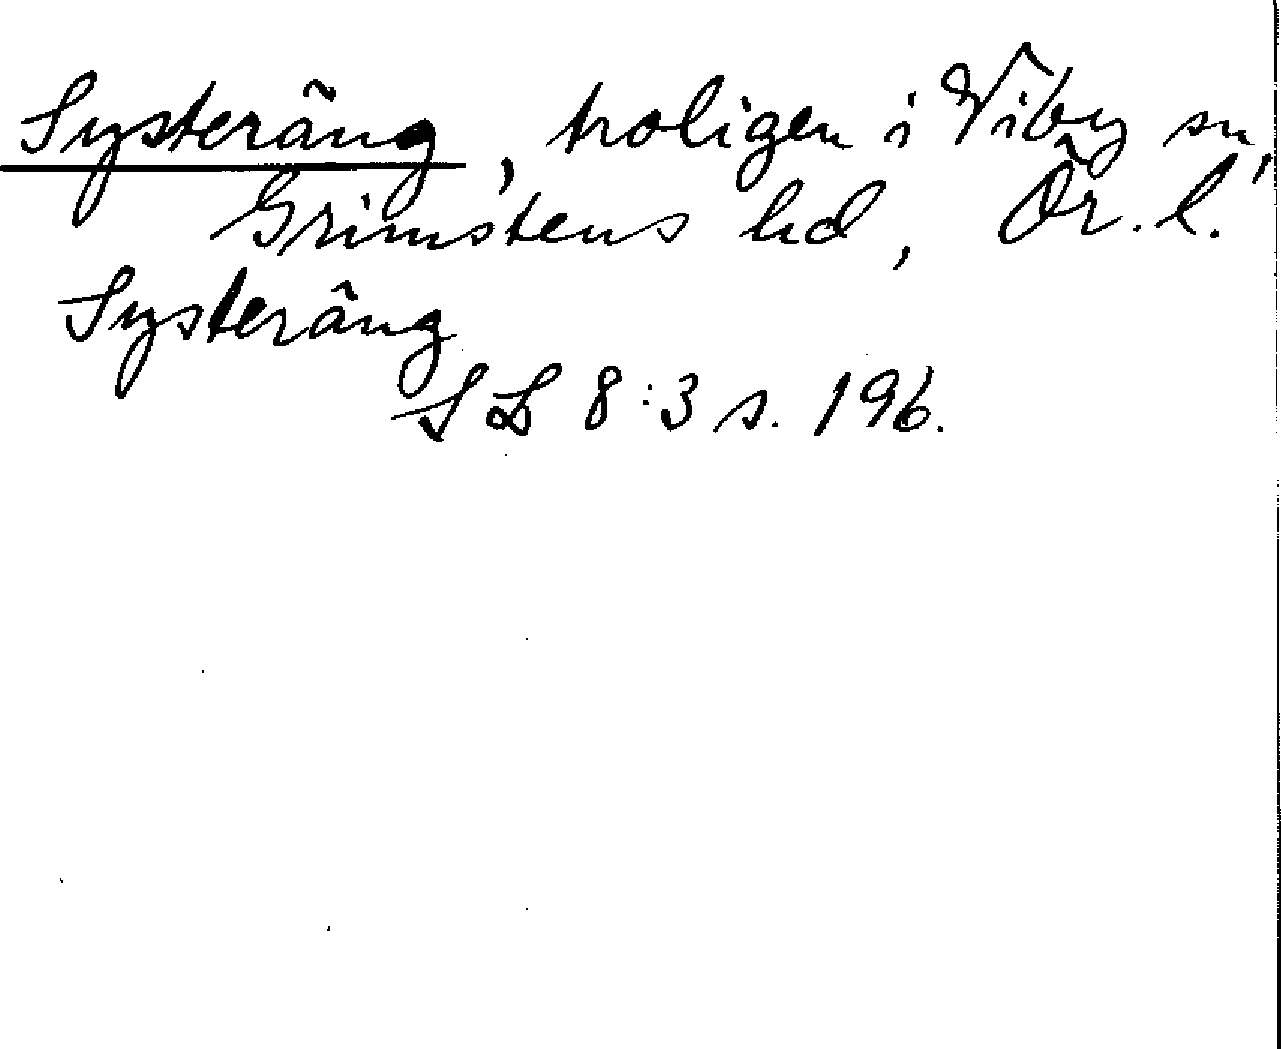 Systeräng, troligen i Viby sn,
Grimstens hd, Ör. l.
Systeräng
SD 8:3 s. 196.